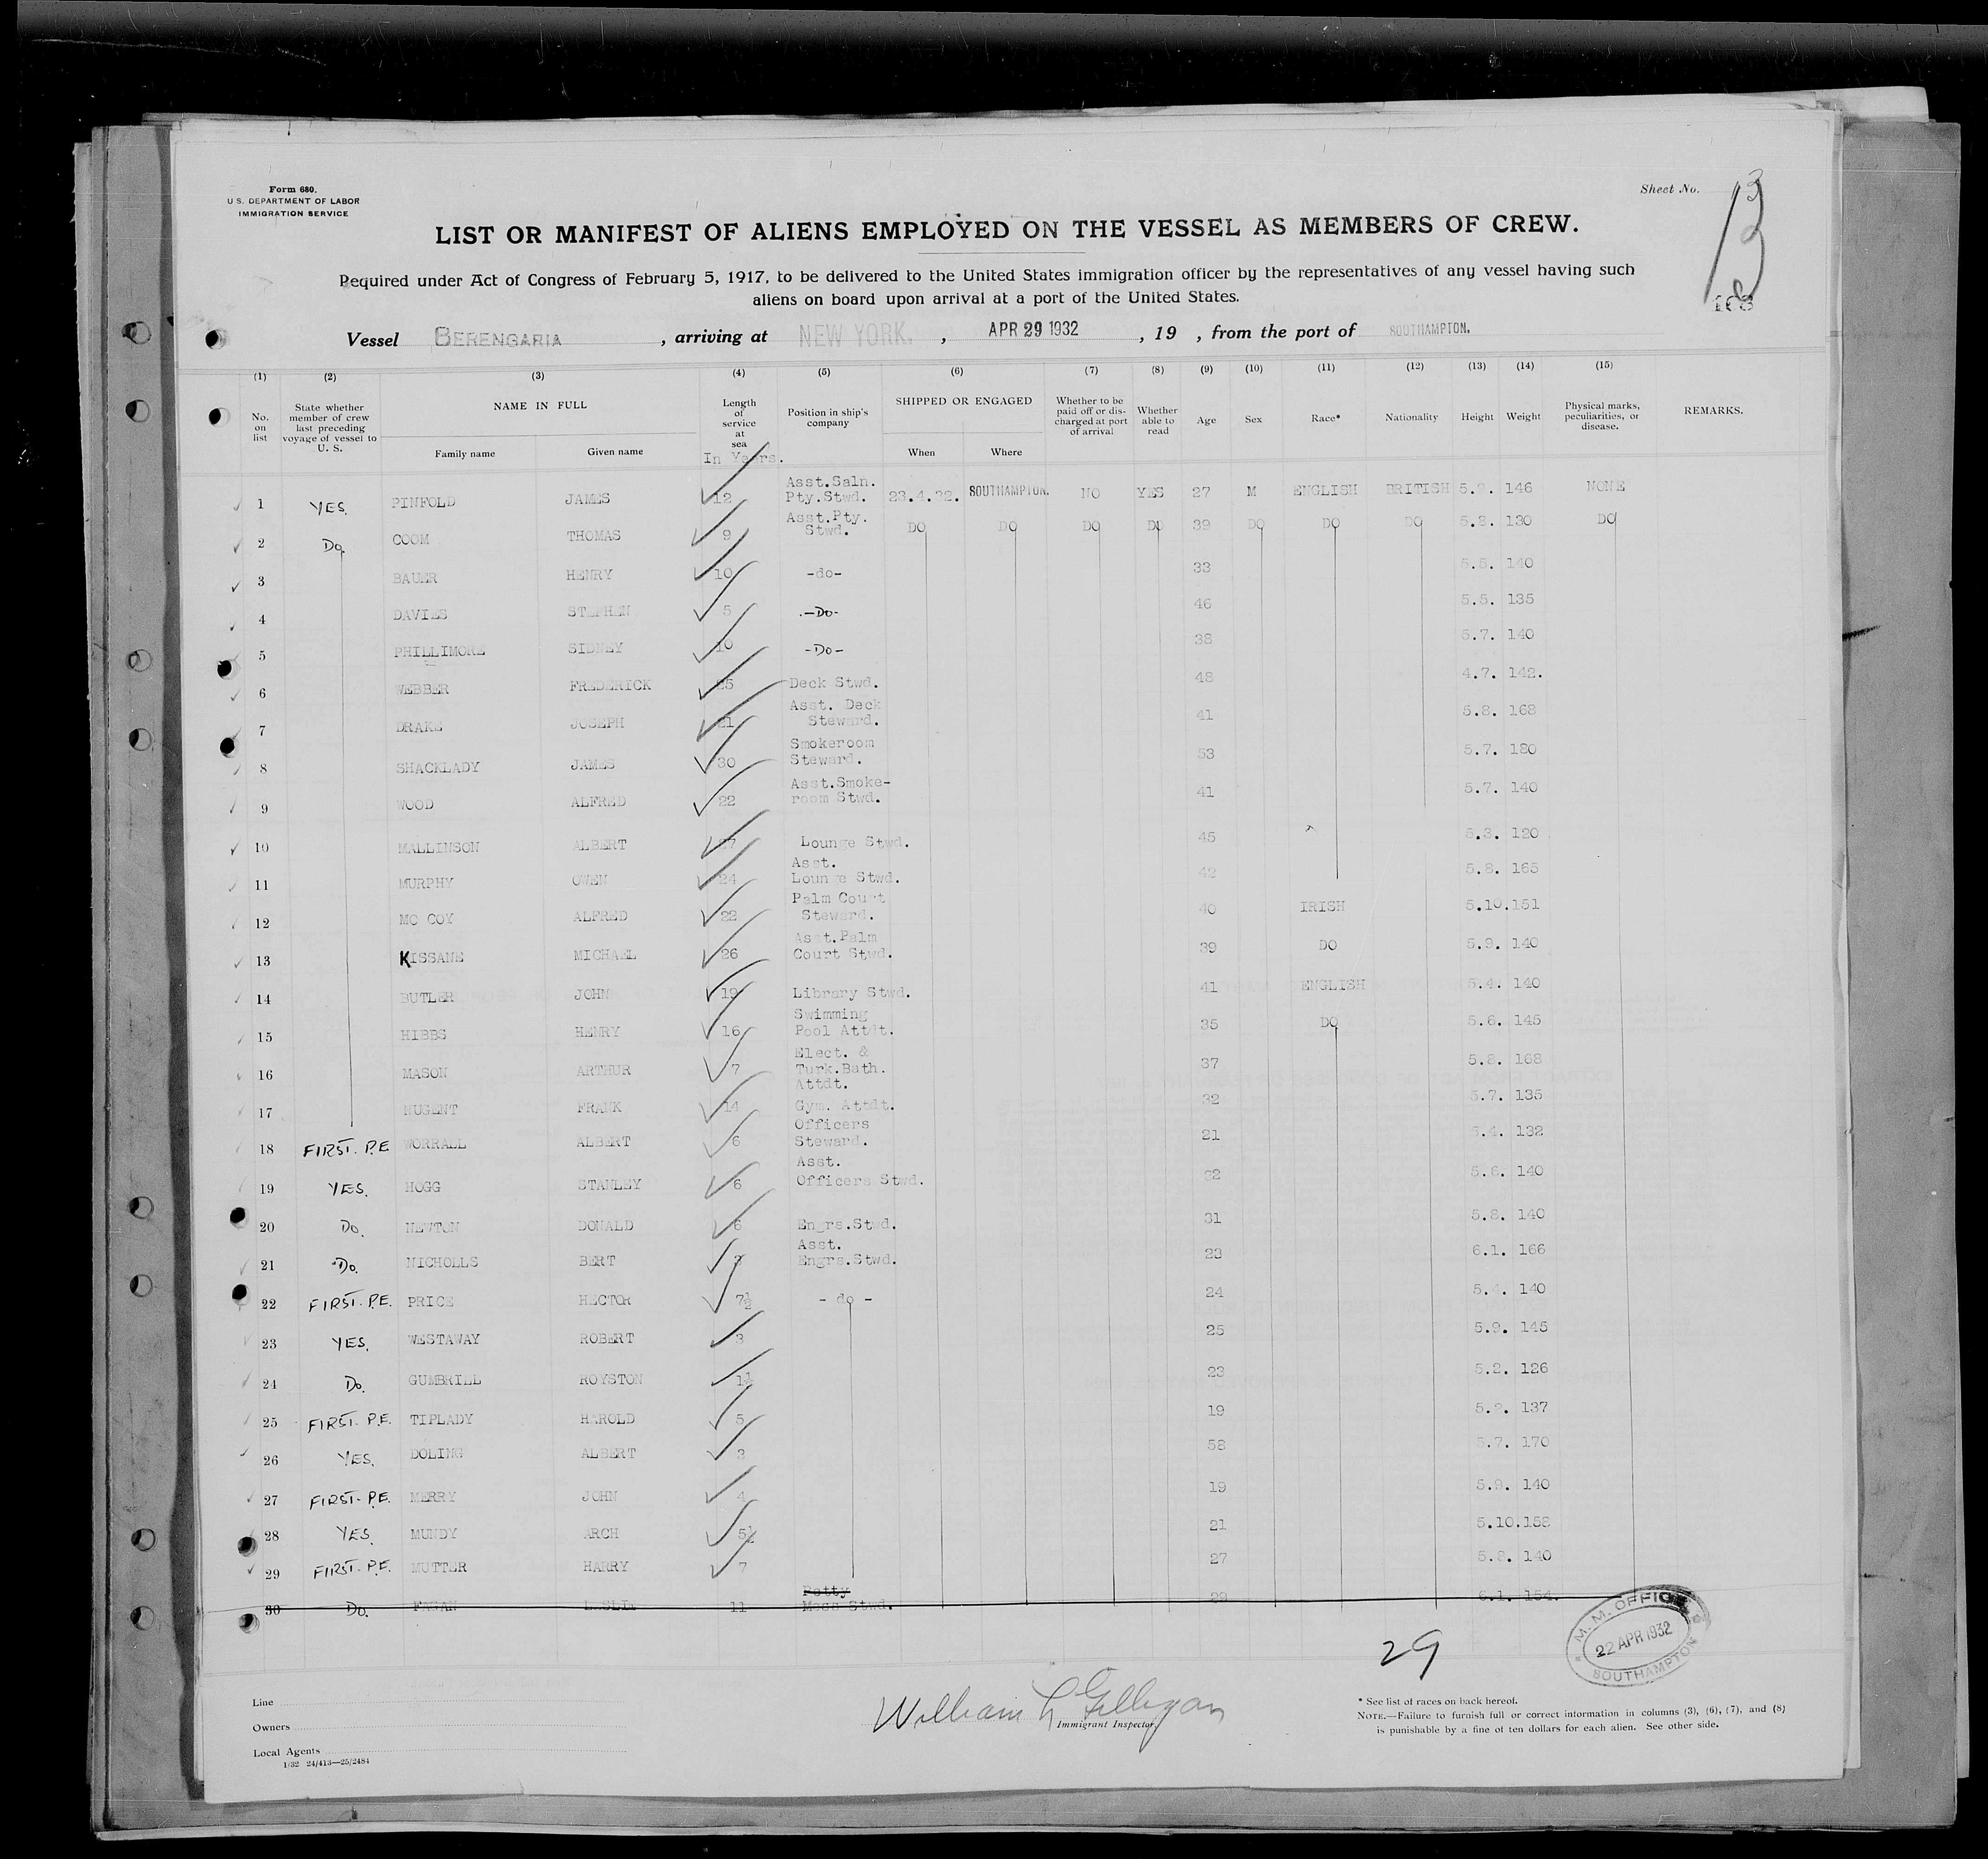 Form 680.
U. S. DEPARTMENT OF LABOR
IMMIGRATION SERVICE
Sheet No.
13
LIST OR MANIFEST OF ALIENS EMPLOYED ON THE VESSEL AS MEMBERS OF CREW.
Required under Act of Congress of February 5, 1917, to be delivered to the United States immigration officer by the representatives of any vessel having such
aliens on board upon arrival at a port of the United States.
Vessel BERENGARIA , arriving at NEW YORK. , APR 29 1932 , 19 , from the port of SOUTHAMPTON.
(1) (2) (3) (4) (5) (6) (7) (8) (9) (10) (11) (12) (13) (14) (15)
No. on list State whether member of crew last preceding voyage of vessel to U. S. NAME IN FULL Family name Given name Length of service at sea In Years. Position in ship's company SHIPPED OR ENGAGED When Where Whether to be paid off or discharged at port of arrival Whether able to read Age Sex Race* Nationality Height Weight Physical marks, peculiarities, or disease. REMARKS.
1 YES. PINFOLD JAMES 12 Asst.Saln. Pty.Stwd. 23.4.32. SOUTHAMPTON. NO YES 27 M ENGLISH BRITISH 146 NONE
2 Do. COOM THOMAS 9 Asst.Pty. Stwd. DO DO DO DO 39 DO DO DO 5.8. 130 DO
3 BAUER HENRY 10 -do- 33 5.5. 140
4 DAVIES STEPHEN 5 -Do- 46 5.5. 135
5 PHILLIMORE SIDNEY 10 -Do- 38 5.7. 140
6 WEBBER FREDERICK 25 Deck Stwd. 48 4.7. 142.
7 DRAKE JOSEPH 21 Asst. Deck Steward. 41 5.8. 168
8 SHACKLADY JAMES 30 Smokeroom Steward. 53 5.7. 180
9 WOOD ALFRED 22 Asst.Smoke-room Stwd. 41 5.7. 140
10 MALLINSON ALBERT 27 Lounge Stwd. 45 5.3. 120
11 MURPHY OWEN 24 Asst. Lounge Stwd. 42 5.8. 165
12 MC COY ALFRED 22 Palm Court Steward. 40 IRISH 5.10.151
13 KISSANE MICHAEL 26 Asst.Palm Court Stwd. 39 DO 5.9. 140
14 BUTLER JOHN 19 Library Stwd. 41 ENGLISH 5.4. 140
15 HIBBS HENRY 16 Swimming Pool Attdt. 35 DO 5.6. 145
16 MASON ARTHUR 7 Elect. & Turk.Bath. Attdt. 37 5.8. 168
17 NUGENT FRANK 14 Gym. Attdt. 32 5.7. 135
18 FIRST. P.E WORRALL ALBERT 6 Officers Steward. 21 5.4. 132
19 YES. HOGG STANLEY 6 Asst. Officers Stwd. 32 5.6. 140
20 Do. NEWTON DONALD 6 Engrs.Stwd. 31 5.8. 140
21 Do. NICHOLLS BERT Asst. Engrs.Stwd. 23 6.1. 166
22 FIRST. P.E. PRICE HECTOR 7½ - do - 24 5.4. 140
23 YES. WESTAWAY ROBERT 3 25 5.9. 145
24 Do. GUMBRILL ROYSTON 23 5.2. 126
25 FIRST. P.E. TIPLADY HAROLD 5 19 137
26 YES. DOLING ALBERT 3 58 5.7. 170
27 FIRST. P.E. MERRY JOHN 4 19 5.9. 140
28 YES. MUNDY ARCH 5½ 21 5.10.158
29 FIRST. P.E. MUTTER HARRY 7 27 5.8. 140
30 Do. FAGAN LESLIE 11 Petty Mess Stwd. 29 6.1. 154.
29
M. M. OFFICE
22 APR 1932
SOUTHAMPTON
Line
Owners
Local Agents
1/32 24/413—25/2484
William L Gilligan
Immigrant Inspector.
* See list of races on back hereof.
NOTE.—Failure to furnish full or correct information in columns (3), (6), (7), and (8)
is punishable by a fine of ten dollars for each alien. See other side.